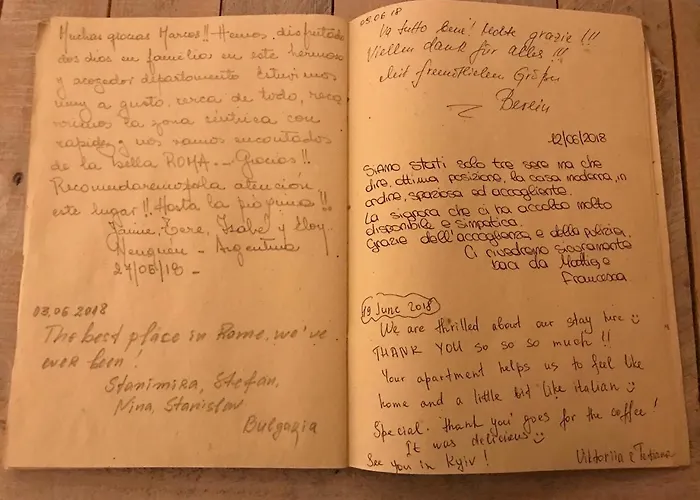 Muchas gracias Marcos!! Hemos disfrutado
dos dias en familia en este hermoso
y acogedor departamento. Estuvimos
muy a gusto, cerca de todo,
la zona centrica con
rapidez y nos vamos encantados
de la bella ROMA. Gracias!!
la atención
este lugar!! Hasta la próxima!!
Jaime, Tere, Isabel y Eloy.
Neuquén - Argentina
27/05/18 -
03.06 2018
The best place in Rome, we've
ever been!
Stanimira, Stefan,
Nina, Stanislav
Bulgaria
03.06 18
Va tutto bene! Molte grazie!!!
Vielen dank für alles!!!
Mit freundlichen Grüßen
Berlin
12/06/2018
Siamo stati solo tre sere ma che
dire, ottima posizione, la casa moderna, in
ordine, spaziosa ed accogliente.
La signora che ci ha accolto molto
disponibile e simpatica.
Grazie dell'accoglienza e della pulizia.
Ci rivedremo sicuramente
baci da Mattia e
Francesca
19 June 2018
We are thrilled about our stay here
THANK YOU so so so much!!
Your apartment helps us to feel like
home and a little bit like italian
Special thank you goes for the coffee!
It was delicious
See you in Kyiv!
Viktoriia & Tetiana